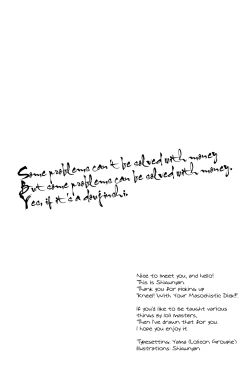 Some problems can't be solved with money
But some problems can be solved with money.
Yes, if it's a doujinshi.
Nice to meet you, and hello!
This is
Thank you for picking up
"Kneel! With Your Masochistic Dick!!"
If you'd like to be taught various
things by loli masters,
Then I've drawn that for you.
I hope you enjoy it.
Typesetting: (Lolicon Groupie)
Illustrations: